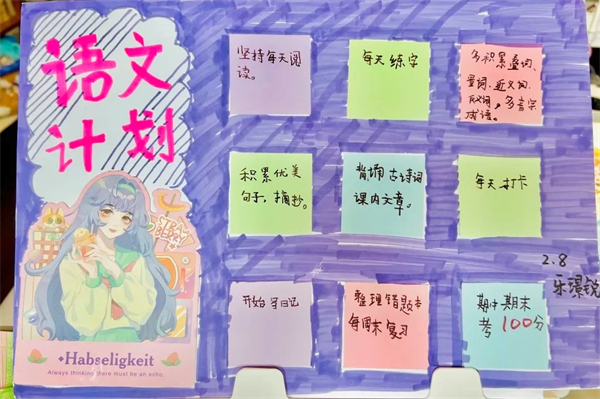 语文
计划
坚持每天阅
读。
每天练字
多积累叠词、
量词、近义词、
反词,多音字
成语。
积累优美
句子,摘抄。
背诵古诗词
课内文章。
每天打卡
开始写日记
整理错题本
每周末复习
期中期末
考100分
2.8
乐璟锐
Habseligkeit
Always thinking there must be an echo.